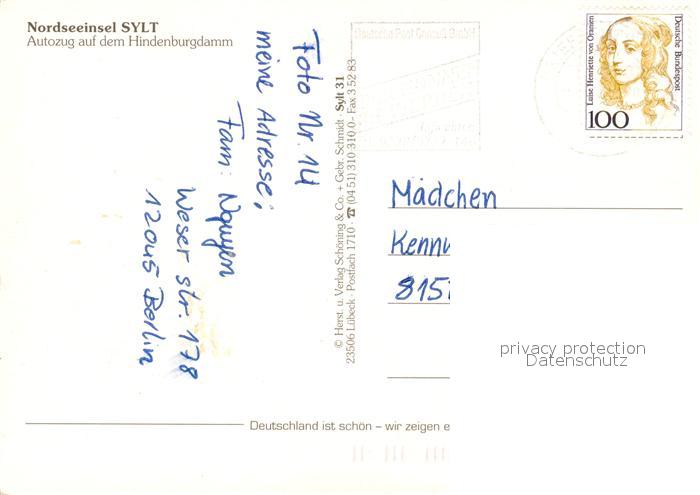 Nordseeinsel SYLT
Autozug auf dem Hindenburgdamm
Foto Nr. 14
meine Adresse:
Fam: Nguyen
Weser str. 178
12045 Berlin
© Herst. u. Verlag Schöning & Co. + Gebr. Schmidt · Sylt 31
23506 Lübeck · Postfach 1710 · ☎ (04 51) 310 310.0 - Fax 3 52 83
Luise Henriette von Oranien
Deutsche Bundespost
100
Mädchen
Kennw
8151
privacy protection
Datenschutz
Deutschland ist schön – wir zeigen e